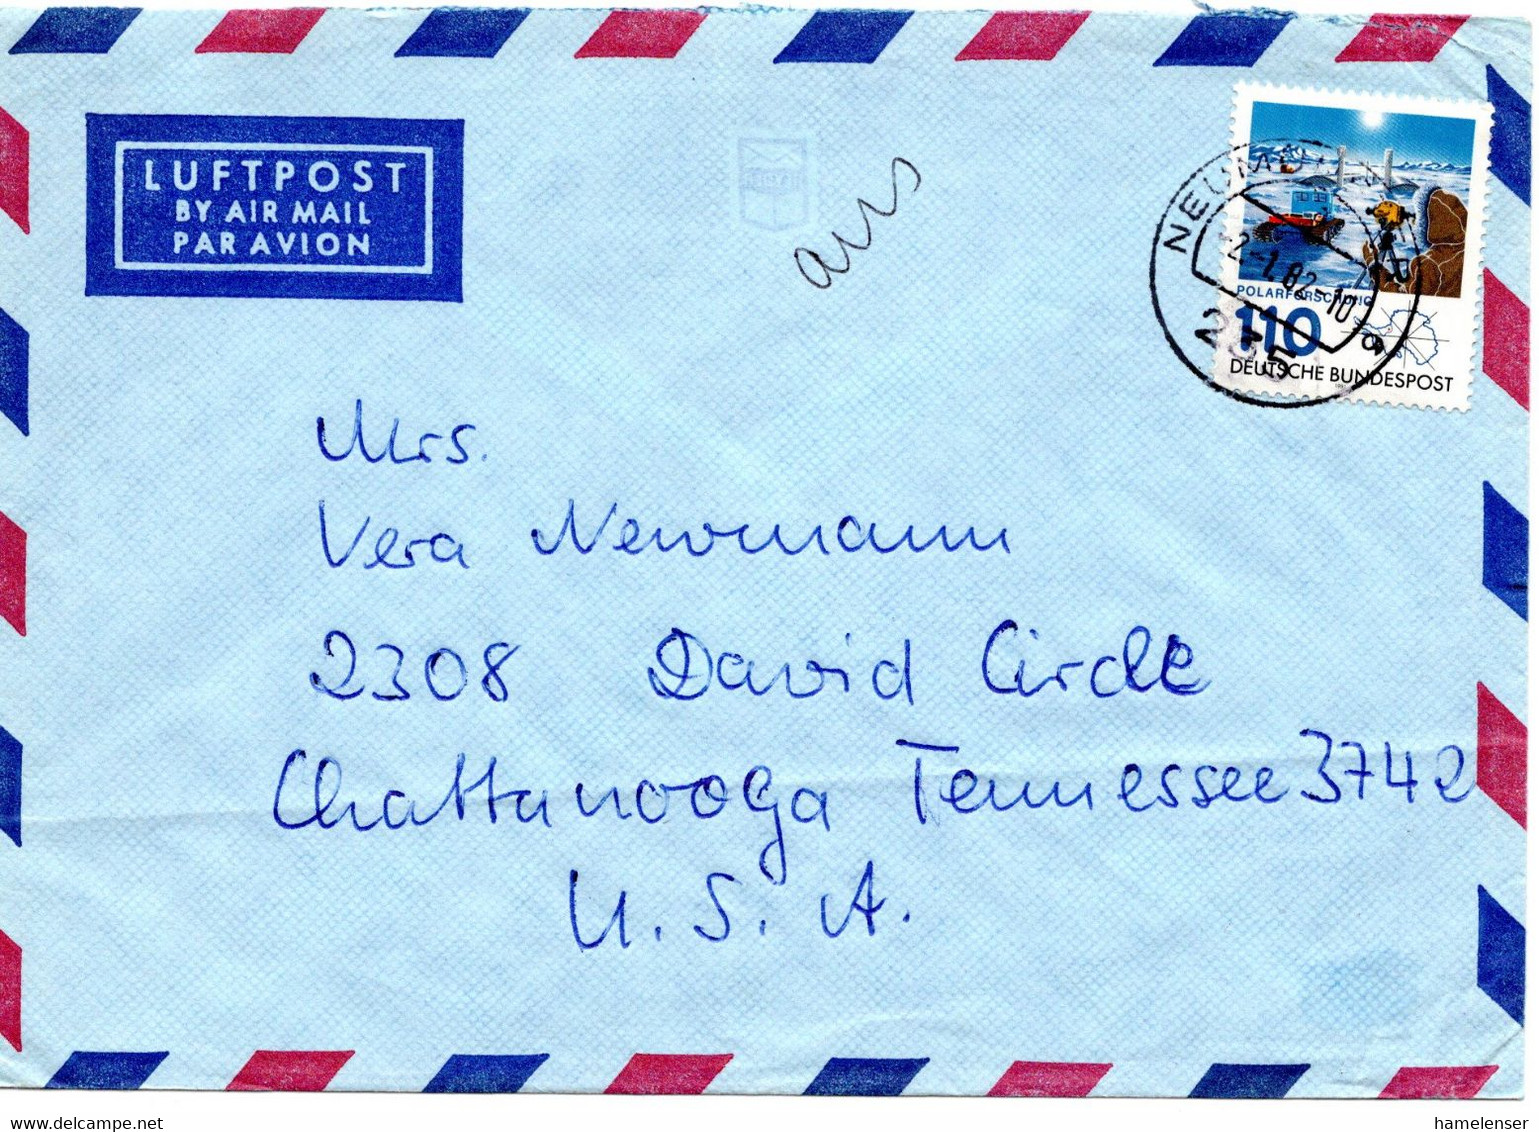 LUFTPOST
BY AIR MAIL
PAR AVION
ans
POLARFORSCHUNG
110
DEUTSCHE BUNDESPOST
235
Mrs.
Vera Newmann
2308 David Circle
Chattanooga Tennessee 3742
U. S. A.
hamelenser